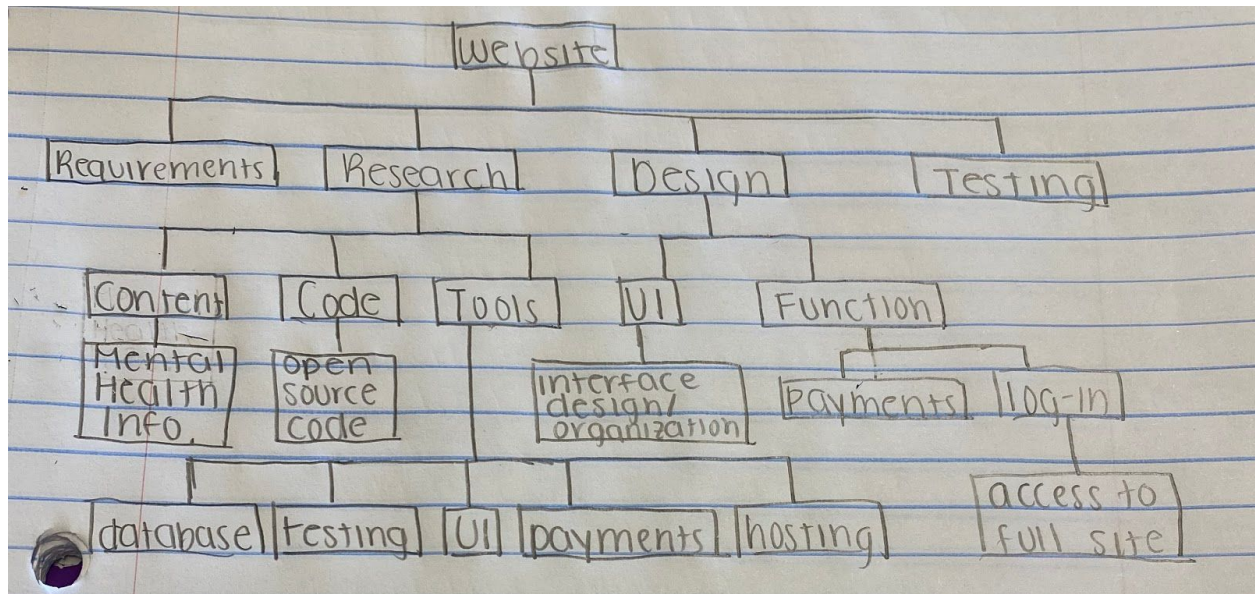 Website
Requirements Research Design Testing
Content Code Tools UI Function
Mental
Health
Info.
open
source
code
interface
design/
organization
payments log-in
database testing UI payments hosting
access to
full site